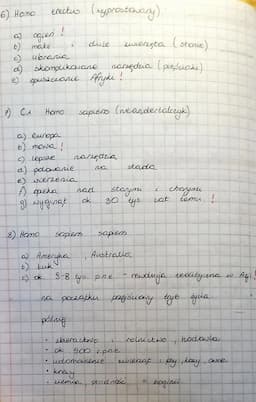 6) Homo erectus (wyprostowany)
a) ogień !
b) małe i duże zwierzęta (słonie)
c) ubrania
d) skomplikowane narzędzia (pięściaki)
e) opuszczenie Afryki !
7) Homo sapiens (neandertalczyk)
a) Europa
b) mowa !
c) lepsze narzędzia
d) polowanie na stada
e) wierzenia
f) opieka nad starymi i chorymi
g) wyginął ok 30 tys lat temu !
8) Homo sapiens sapiens
a) Ameryka, Australia
b) łuk
c) ok 8-8 tys. p.n.e. - rewolucja neolityczna w Azji !
na początku tryb życia
później
• zbieractwo i rolnictwo, hodowla
• ok 500 r. p.n.e.
• udomowienie zwierząt : psy, kozy, owce
•
• ziemia, płodność = bogini